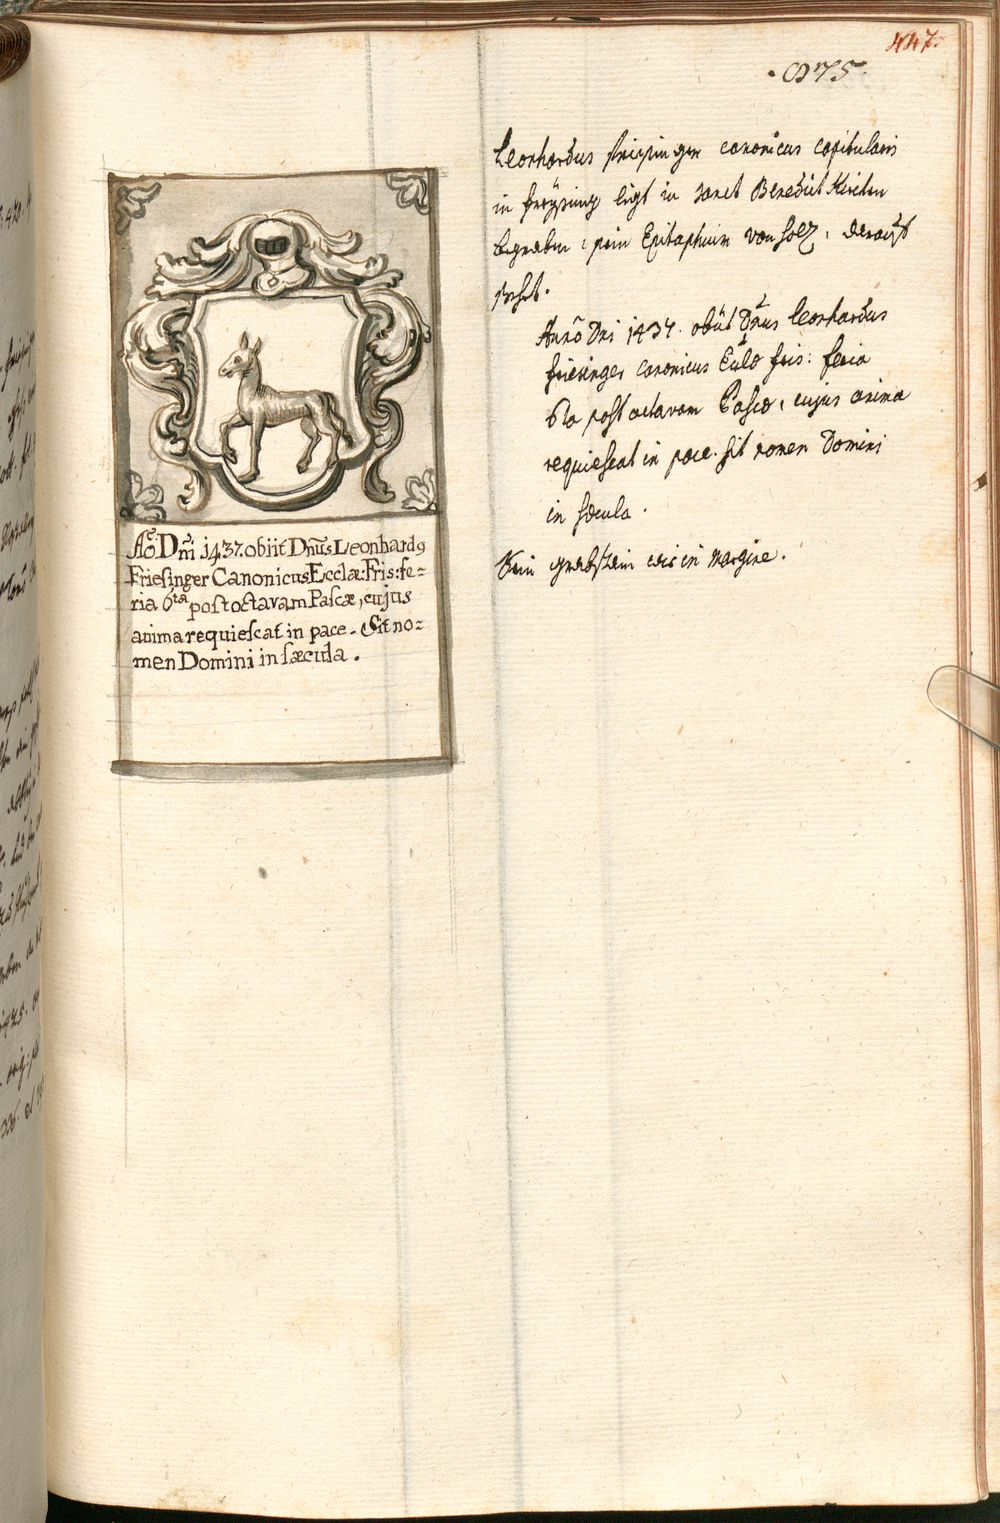 447.
Leonhardus friesinger canonicus capitularis
in freÿsing ligt in sanct Benedict Kirchen
begraben : sein Epitaphium von holz, darauf
stehet.
Anno Dni 1437. obiit Dnus Leonhardus
friesinger canonicus Eccl fris: feria
6ta post octavam Pascæ, cujus anima
requiescat in pace. sit nomen Domini
in sæcula.
Sein grabstein wie in margine.
Aõ Dnĩ 1437. obiit Dnũs Leonhardꝯ
Friesinger Canonicus Ecclæ: Fris: fe=
ria 6ta post octavam Pascæ, cujus
anima requiescat in pace. Sit no=
men Domini in sæcula.